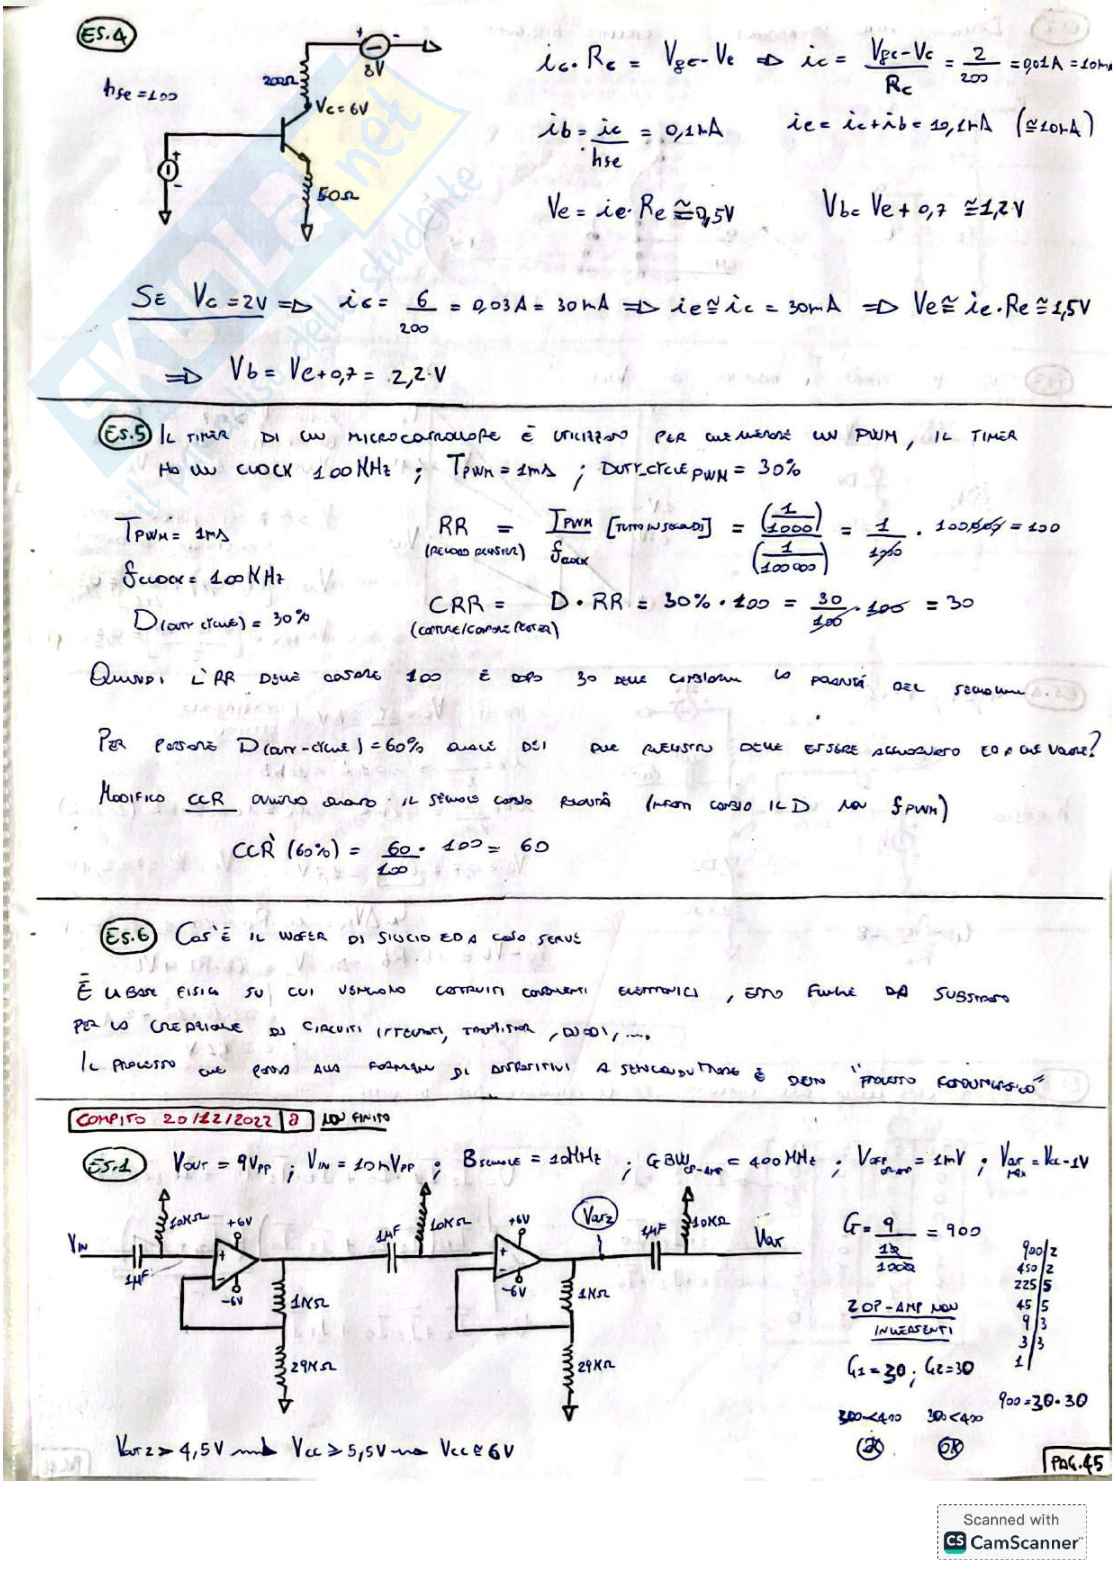 ES.4
hfe = 100
200Ω
8V
Vc = 6V
50Ω
ic · Rc = Vgc - Vc ⇒ ic = Vgc - Vc / Rc = 2 / 200 = 0,01A = 10mA
ib = ic / hfe = 0,1mA   ie = ic + ib = 10,1mA (≅10mA)
Ve = ie · Re ≅ 0,5V   Vb = Ve + 0,7 ≅ 1,2V
SE Vc = 2V ⇒ ic = 6 / 200 = 0,03A = 30mA ⇒ ie ≅ ic = 30mA ⇒ Ve ≅ ie · Re ≅ 1,5V
⇒ Vb = Ve + 0,7 = 2,2V
ES.5 IL TIMER DI UN MICROCONTROLLORE È UTILIZZATO PER GENERARE UN PWM, IL TIMER
HA UN CLOCK 100KHz ; TPWM = 1ms ; DUTY_CYCLE PWM = 30%
TPWM = 1ms
fCLOCK = 100KHz
D(DUTY CYCLE) = 30%
RR = TPWM / fCLOCK [TUTTO IN SECONDI] = (1/1000) / (1/100000) = 1/1000 · 100000 = 100
(RELOAD REGISTER)
CRR = D · RR = 30% · 100 = 30/100 · 100 = 30
(CAPTURE/COMPARE REGISTER)
QUINDI L'RR DEVE CONTARE 100 E DOPO 30 DEVE CAMBIARE LA POLARITÀ DEL SEGNALE
PER PORTARE D(DUTY-CYCLE) = 60% QUALE DEI DUE REGISTRI DEVE ESSERE AGGIORNATO ED A CHE VALORE?
MODIFICO CCR OVVERO QUANDO IL SEGNALE CAMBIA POLARITÀ (INFATTI CAMBIO IL D NON fPWM)
CCR (60%) = 60/100 · 100 = 60
ES.6 COS'È IL WAFER DI SILICIO ED A COSA SERVE
È LA BASE FISICA SU CUI VENGONO COSTRUITI COMPONENTI ELETTRONICI, ESSO FUNGE DA SUBSTRATO
PER LA CREAZIONE DI CIRCUITI INTEGRATI, TRANSISTOR, DIODI, ....
IL PROCESSO CHE PORTA ALLA FORMAZIONE DI DISPOSITIVI A SEMICONDUTTORE È DETTO "PROCESSO FOTOLITOGRAFICO"
COMPITO 20/12/2022 a NON FINITO
ES.1 VOUT = 9Vpp ; VIN = 10mVpp ; BSEGNALE = 10MHz ; GBWOP-AMP = 400MHz ; VOFFOP-AMP = 1mV ; VOUTMAX = Vcc - 1V
VIN
1μF
10KΩ
+6V
-6V
1KΩ
29KΩ
1μF
10KΩ
+6V
-6V
VOUT2
1KΩ
29KΩ
1μF
10KΩ
VOUT
G = 9 / (10/1000) = 900
2 OP-AMP NON
INVERTENTI
G1 = 30 ; G2 = 30
300<400 300<400
OK OK
900 | 2
450 | 2
225 | 5
45 | 5
9 | 3
3 | 3
1 |
900 = 30 · 30
VOUT2 > 4,5V → Vcc ≥ 5,5V → Vcc ≅ 6V
PAG.45
SKUOLA.net
il paradiso dello studente
Scanned with
CS CamScanner